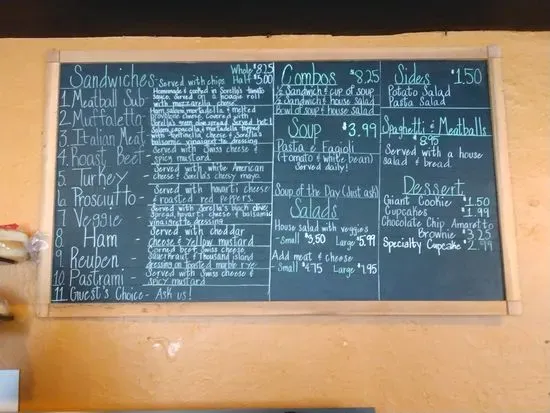 Sandwiches - Served with chips Whole $8.25
Half $5.00
1. Meatball Sub - Homemade & cooked in Sorella's tomato
sauce, served on a hoagie roll
with mozzarella cheese
2. Muffaletta - Ham, salami, mortadella & melted
provolone cheese, covered with
Sorella's own olive spread. Served hot!
3. Italian Meat - Salami, capacolla & mortadella topped
with fontinella cheese & Sorella's
balsamic vinaigrette dressing
4. Roast Beef - Served with Swiss cheese &
spicy mustard
5. Turkey - Served with white American
cheese & Sorella's chesy mayo
6. Prosciutto - Served with havarti cheese
& roasted red peppers
7. Veggie - Served with Sorella's black olive
spread, havarti cheese & balsamic
vinaigrette dressing
8. Ham - Served with cheddar
cheese & yellow mustard
9. Reuben - Corned beef, Swiss cheese,
Sauerkraut & Thousand island
dressing on toasted marble rye
10. Pastrami - Served with Swiss cheese &
spicy mustard
11. Guest's Choice - Ask us!
Combos $8.25
½ Sandwich & cup of soup
½ Sandwich & house salad
Bowl of soup & house salad
Soup $3.99
Pasta e Fagioli
(tomato & white bean)
Served daily!
Soup of the Day (Just ask)
Salads
House salad with veggies
- Small $3.50 Large $5.99
Add meat & cheese
- Small $4.75 Large $7.95
Sides $1.50
Potato Salad
Pasta Salad
Spaghetti & Meatballs
$8.95
Served with a house
salad & bread.
Dessert
Giant Cookie $1.50
Cupcakes $1.99
Chocolate Chip Amaretto
Brownie $3.25
Specialty Cupcake $2.99